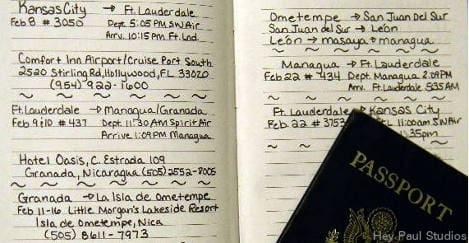 Kansas City → Ft. Lauderdale
Feb 8 # 3050 Dept. 5:05 PM SW Air
Arrv. 10:15 PM Ft. Lnd.
Comfort Inn Airport/Cruise Port South
2520 Stirling Rd, Hollywood, FL 33020
(954) 922-1600
Ft. Lauderdale → Managua/Granada
Feb 9/10 # 437 Dept. 11:30 AM Spirit Air
Arrive 1:09 PM Managua
Hotel Oasis, C. Estrada 109
Granada, Nicaragua (505) 2552-8005
Granada → La Isla de Ometempe
Feb 11-16 Little Morgan's Lakeside Resort
Isla de Ometempe, Nica
(505) 8611-7973
Ometempe → San Juan Del Sur
San Juan del Sur → León
León → masaya → managua
Managua → Ft. Lauderdale
Feb 22 # 434 Dept. Managua 2:09 PM
Arrv. Ft Lauderdale 5:35 AM
Ft. Lauderdale → Kansas City
Feb. 22 # 3753 11:00am SW Air
:35pm
PASSPORT
Hey Paul Studios